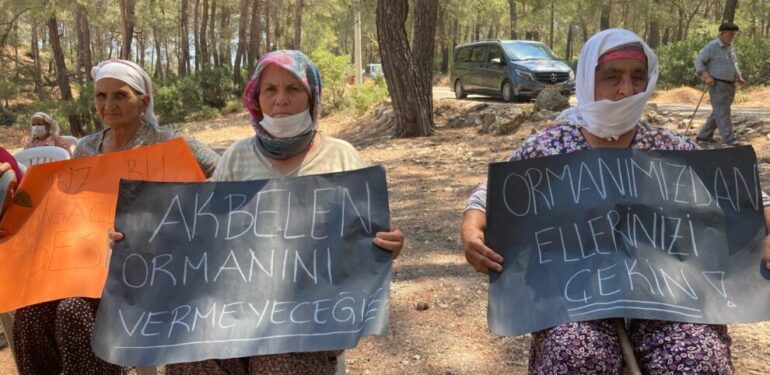 BU
AKBELEN
ORMANINI
VERMEYECEĞİZ
ORMANIMIZDAN
ELLERİNİZİ
ÇEKİN!